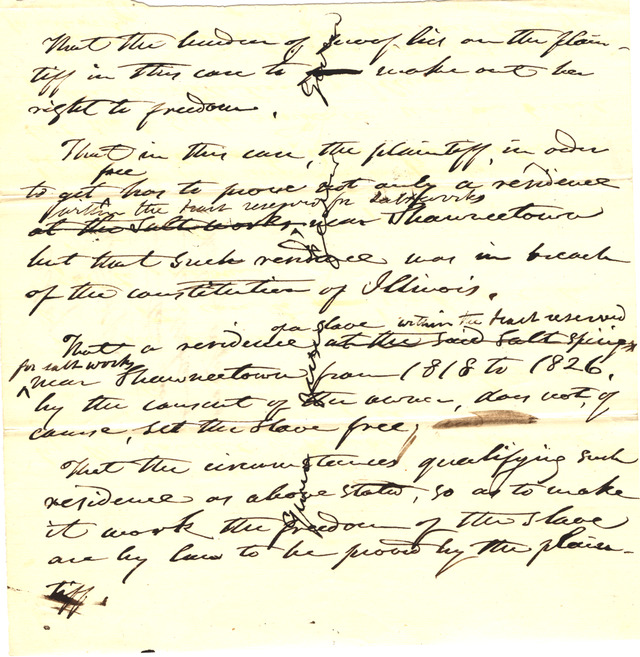 That the burden of proof lies on the plain-
tiff in this case to make out her
right to freedom.
That in this case, the plaintiff, in order
free
to get has to prove not only a residence
within the tract reserved for salt works
at the Salt works near Shawneetown
but that such residence was in breach
of the constitution of Illinois.
of a slave within the tract reserved
That a residence at the said Salt Springs
for salt works
near Shawneetown from 1818 to 1826,
by the consent of the owner, does not, of
cause, set the slave free;
That the circumstances qualifying such
residence as above stated, so as to make
it work the freedom of the slave
are by law to be proved by the plain-
tiff.
Given
Given